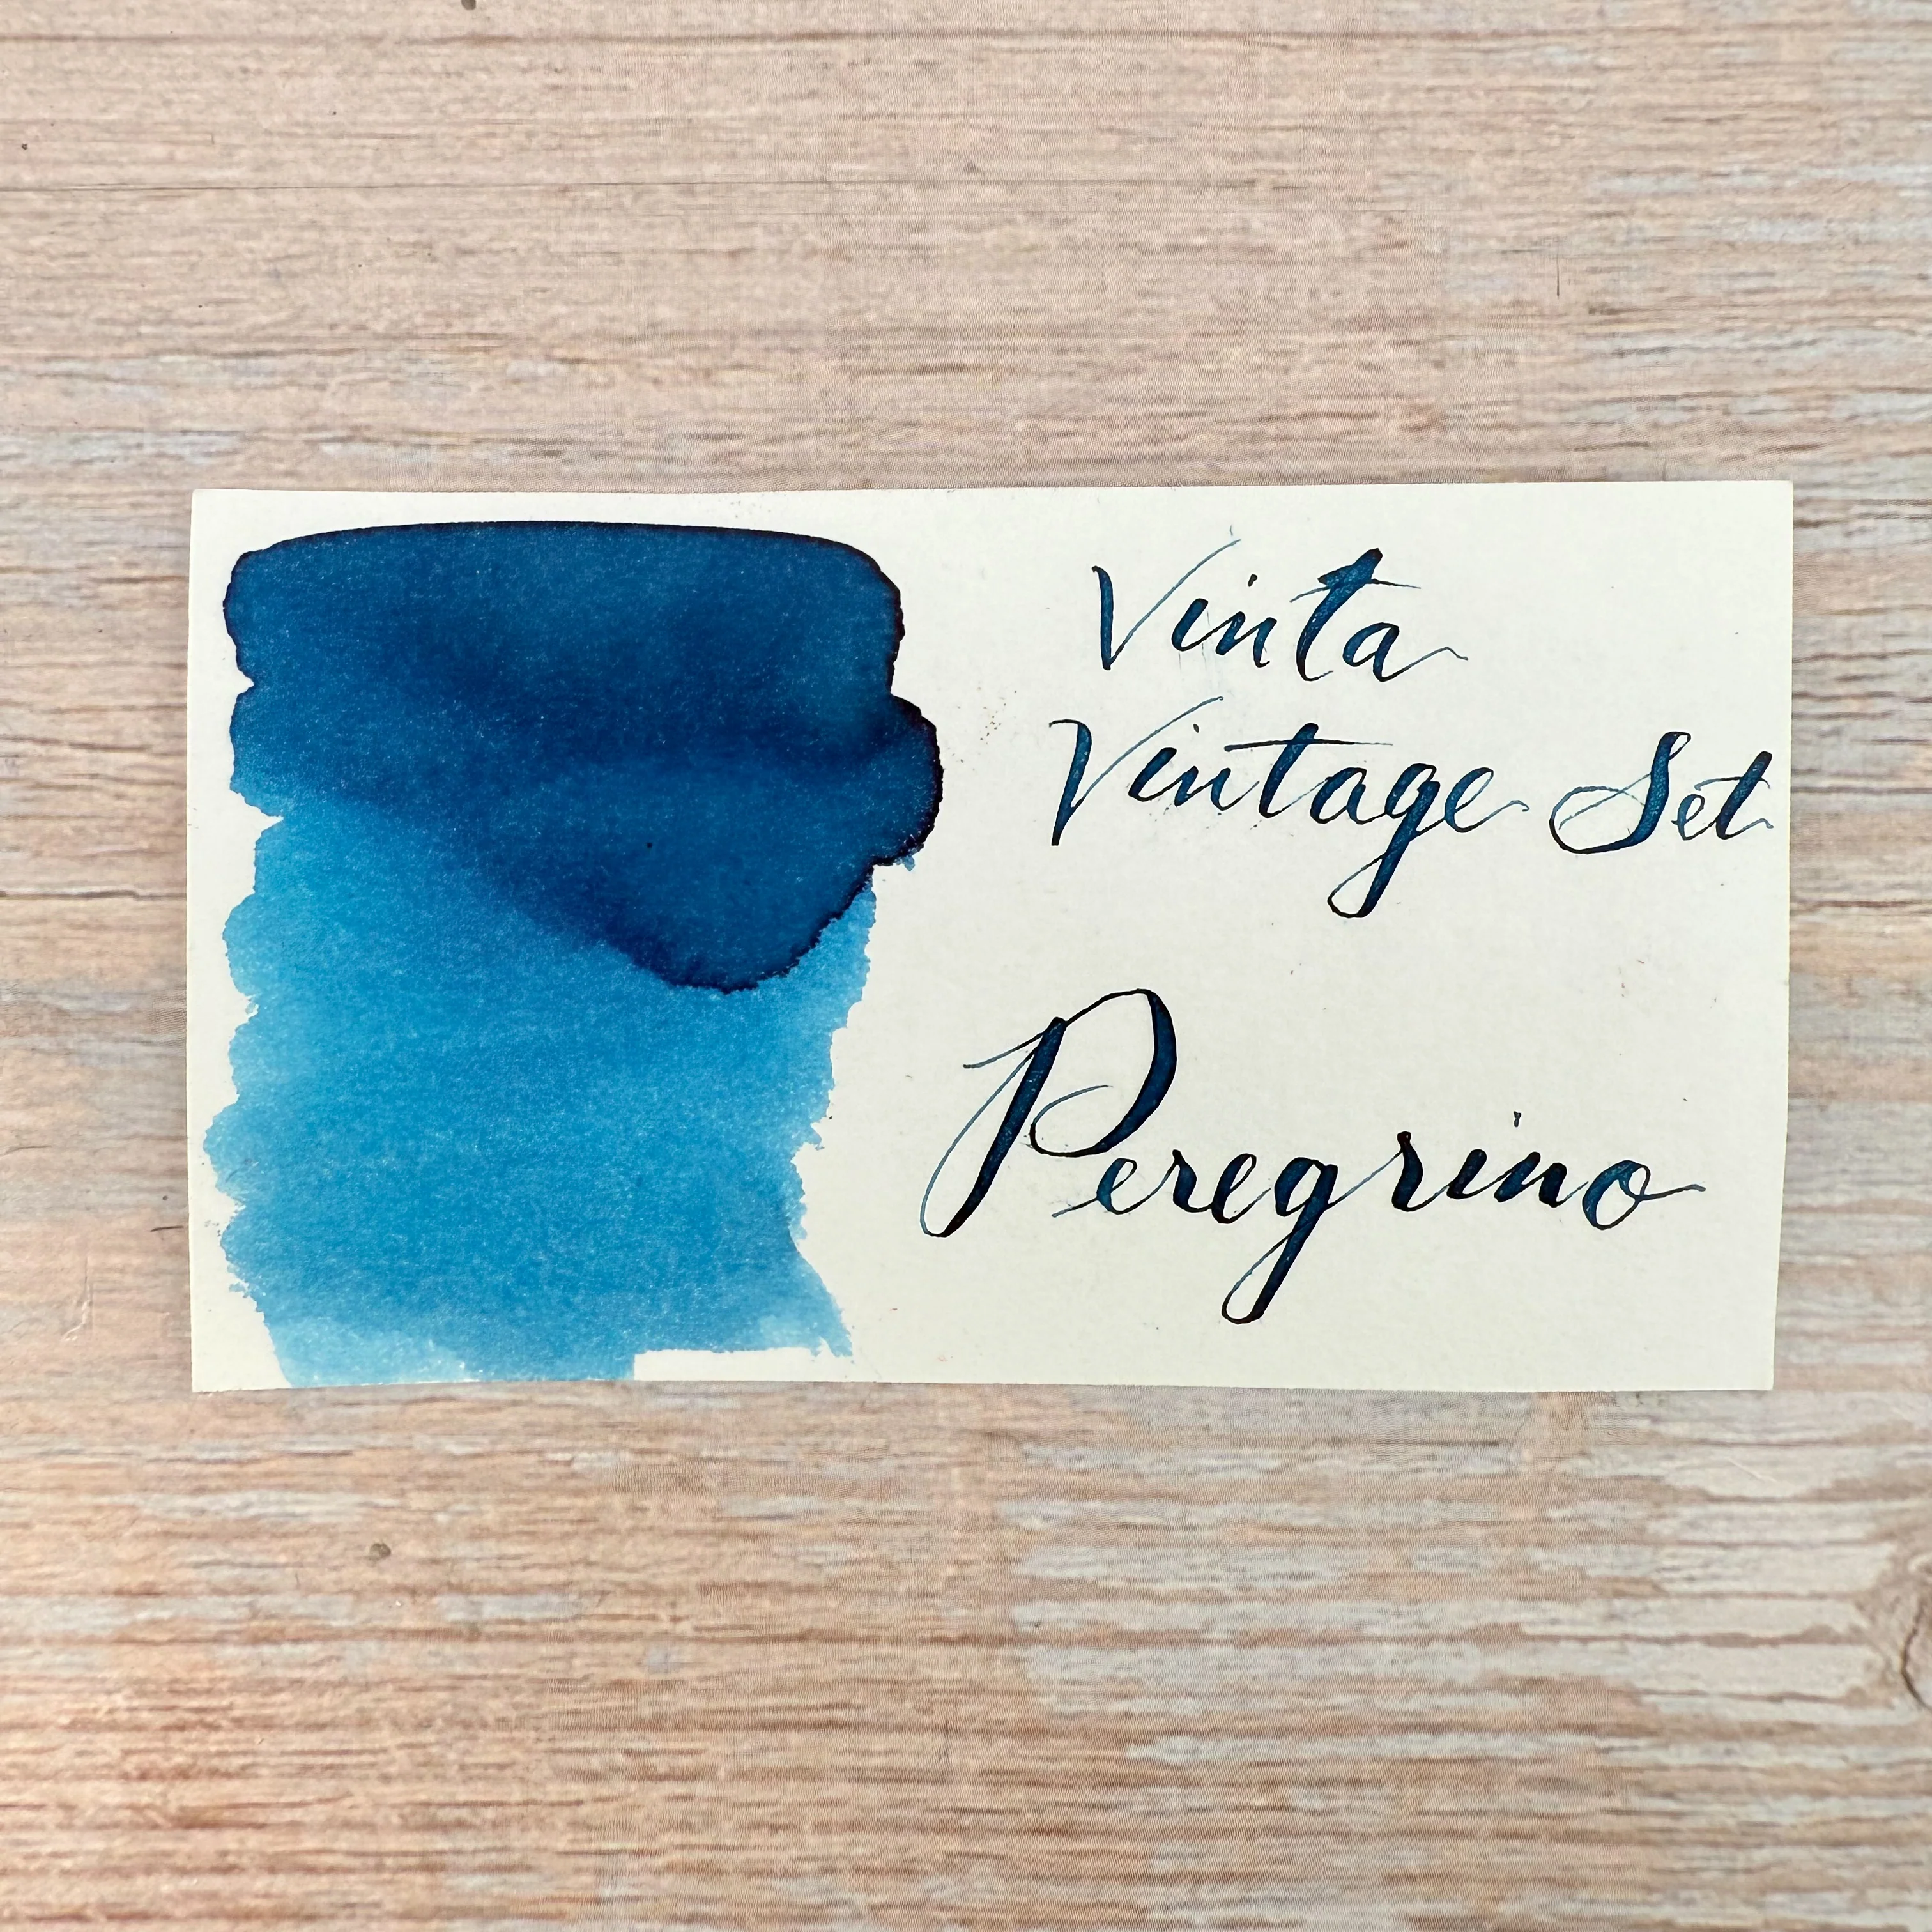 Vinta
Vintage Set
Peregrino